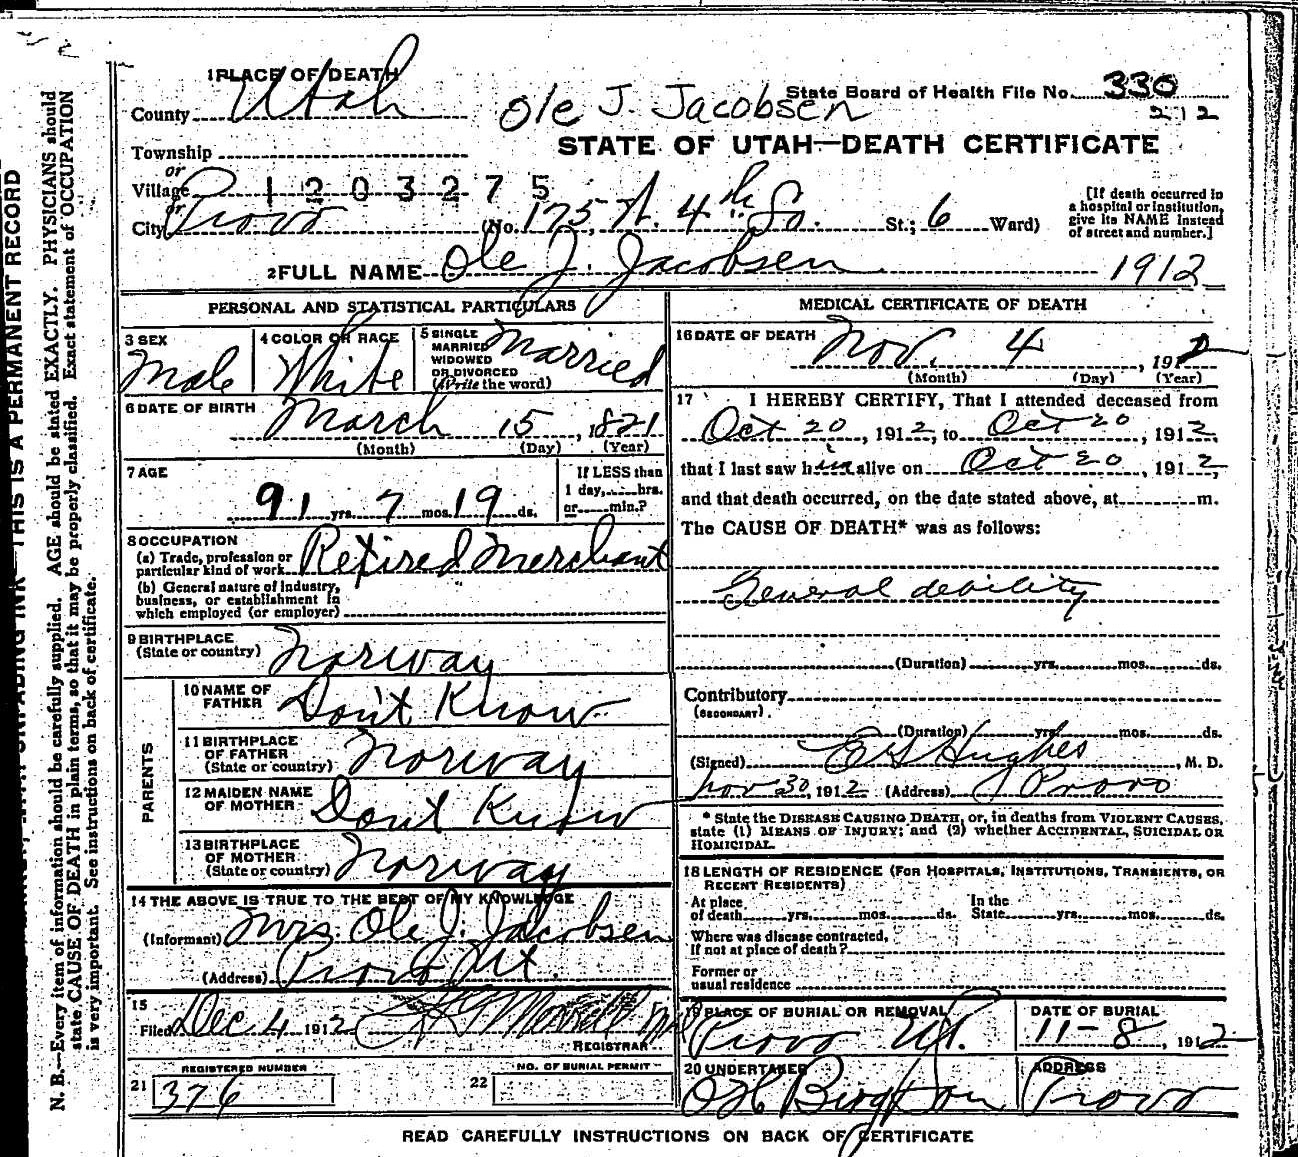 1 PLACE OF DEATH
County Utah
Ole J. Jacobsen
State Board of Health File No. 330
212
STATE OF UTAH—DEATH CERTIFICATE
Township
or
Village
1203275
or
City Provo (No. 175, W. 4th So. St.; 6 Ward)
[If death occurred in
a hospital or institution,
give its NAME instead
of street and number.]
2 FULL NAME Ole J. Jacobsen 1912
PERSONAL AND STATISTICAL PARTICULARS
3 SEX
Male
4 COLOR OR RACE
White
5 SINGLE
MARRIED
WIDOWED
OR DIVORCED
(Write the word)
Married
6 DATE OF BIRTH
March 15, 1821
(Month) (Day) (Year)
7 AGE
91 yrs. 7 mos. 19 ds.
If LESS than
1 day, hrs.
or min.?
8 OCCUPATION
(a) Trade, profession or
particular kind of work Retired Merchant
(b) General nature of industry,
business, or establishment in
which employed (or employer)
9 BIRTHPLACE
(State or country) Norway
PARENTS
10 NAME OF
FATHER Don't Know
11 BIRTHPLACE
OF FATHER
(State or country) Norway
12 MAIDEN NAME
OF MOTHER Don't Know
13 BIRTHPLACE
OF MOTHER
(State or country) Norway
14 THE ABOVE IS TRUE TO THE BEST OF MY KNOWLEDGE
(Informant) Mrs. Ole J. Jacobsen
(Address) Provo Ut.
15
Filed Dec 4, 1912
REGISTRAR
REGISTERED NUMBER
21 376
NO. OF BURIAL PERMIT
22
MEDICAL CERTIFICATE OF DEATH
16 DATE OF DEATH Nov. 4, 1912
(Month) (Day) (Year)
17 I HEREBY CERTIFY, That I attended deceased from
Oct 20, 1912, to Oct 20, 1912,
that I last saw him alive on Oct 20, 1912,
and that death occurred, on the date stated above, at m.
The CAUSE OF DEATH* was as follows:
General debility
(Duration) yrs. mos. ds.
Contributory
(SECONDARY)
(Duration) yrs. mos. ds.
(Signed) E G Hughes, M. D.
Nov 30, 1912 (Address) Provo
* State the DISEASE CAUSING DEATH, or, in deaths from VIOLENT CAUSES,
state (1) MEANS OF INJURY; and (2) whether ACCIDENTAL, SUICIDAL OR
HOMICIDAL.
18 LENGTH OF RESIDENCE (FOR HOSPITALS, INSTITUTIONS, TRANSIENTS, OR
RECENT RESIDENTS)
At place
of death yrs. mos. ds.
In the
State yrs. mos. ds.
Where was disease contracted,
If not at place of death?
Former or
usual residence
19 PLACE OF BURIAL OR REMOVAL
Provo Ut.
DATE OF BURIAL
11-8, 1912
20 UNDERTAKER
ADDRESS
Provo
READ CAREFULLY INSTRUCTIONS ON BACK OF CERTIFICATE
THIS IS A PERMANENT RECORD
N. B.—Every item of information should be carefully supplied. AGE should be stated EXACTLY. PHYSICIANS should
state CAUSE OF DEATH in plain terms, so that it may be properly classified. Exact statement of OCCUPATION
is very important. See instructions on back of certificate.